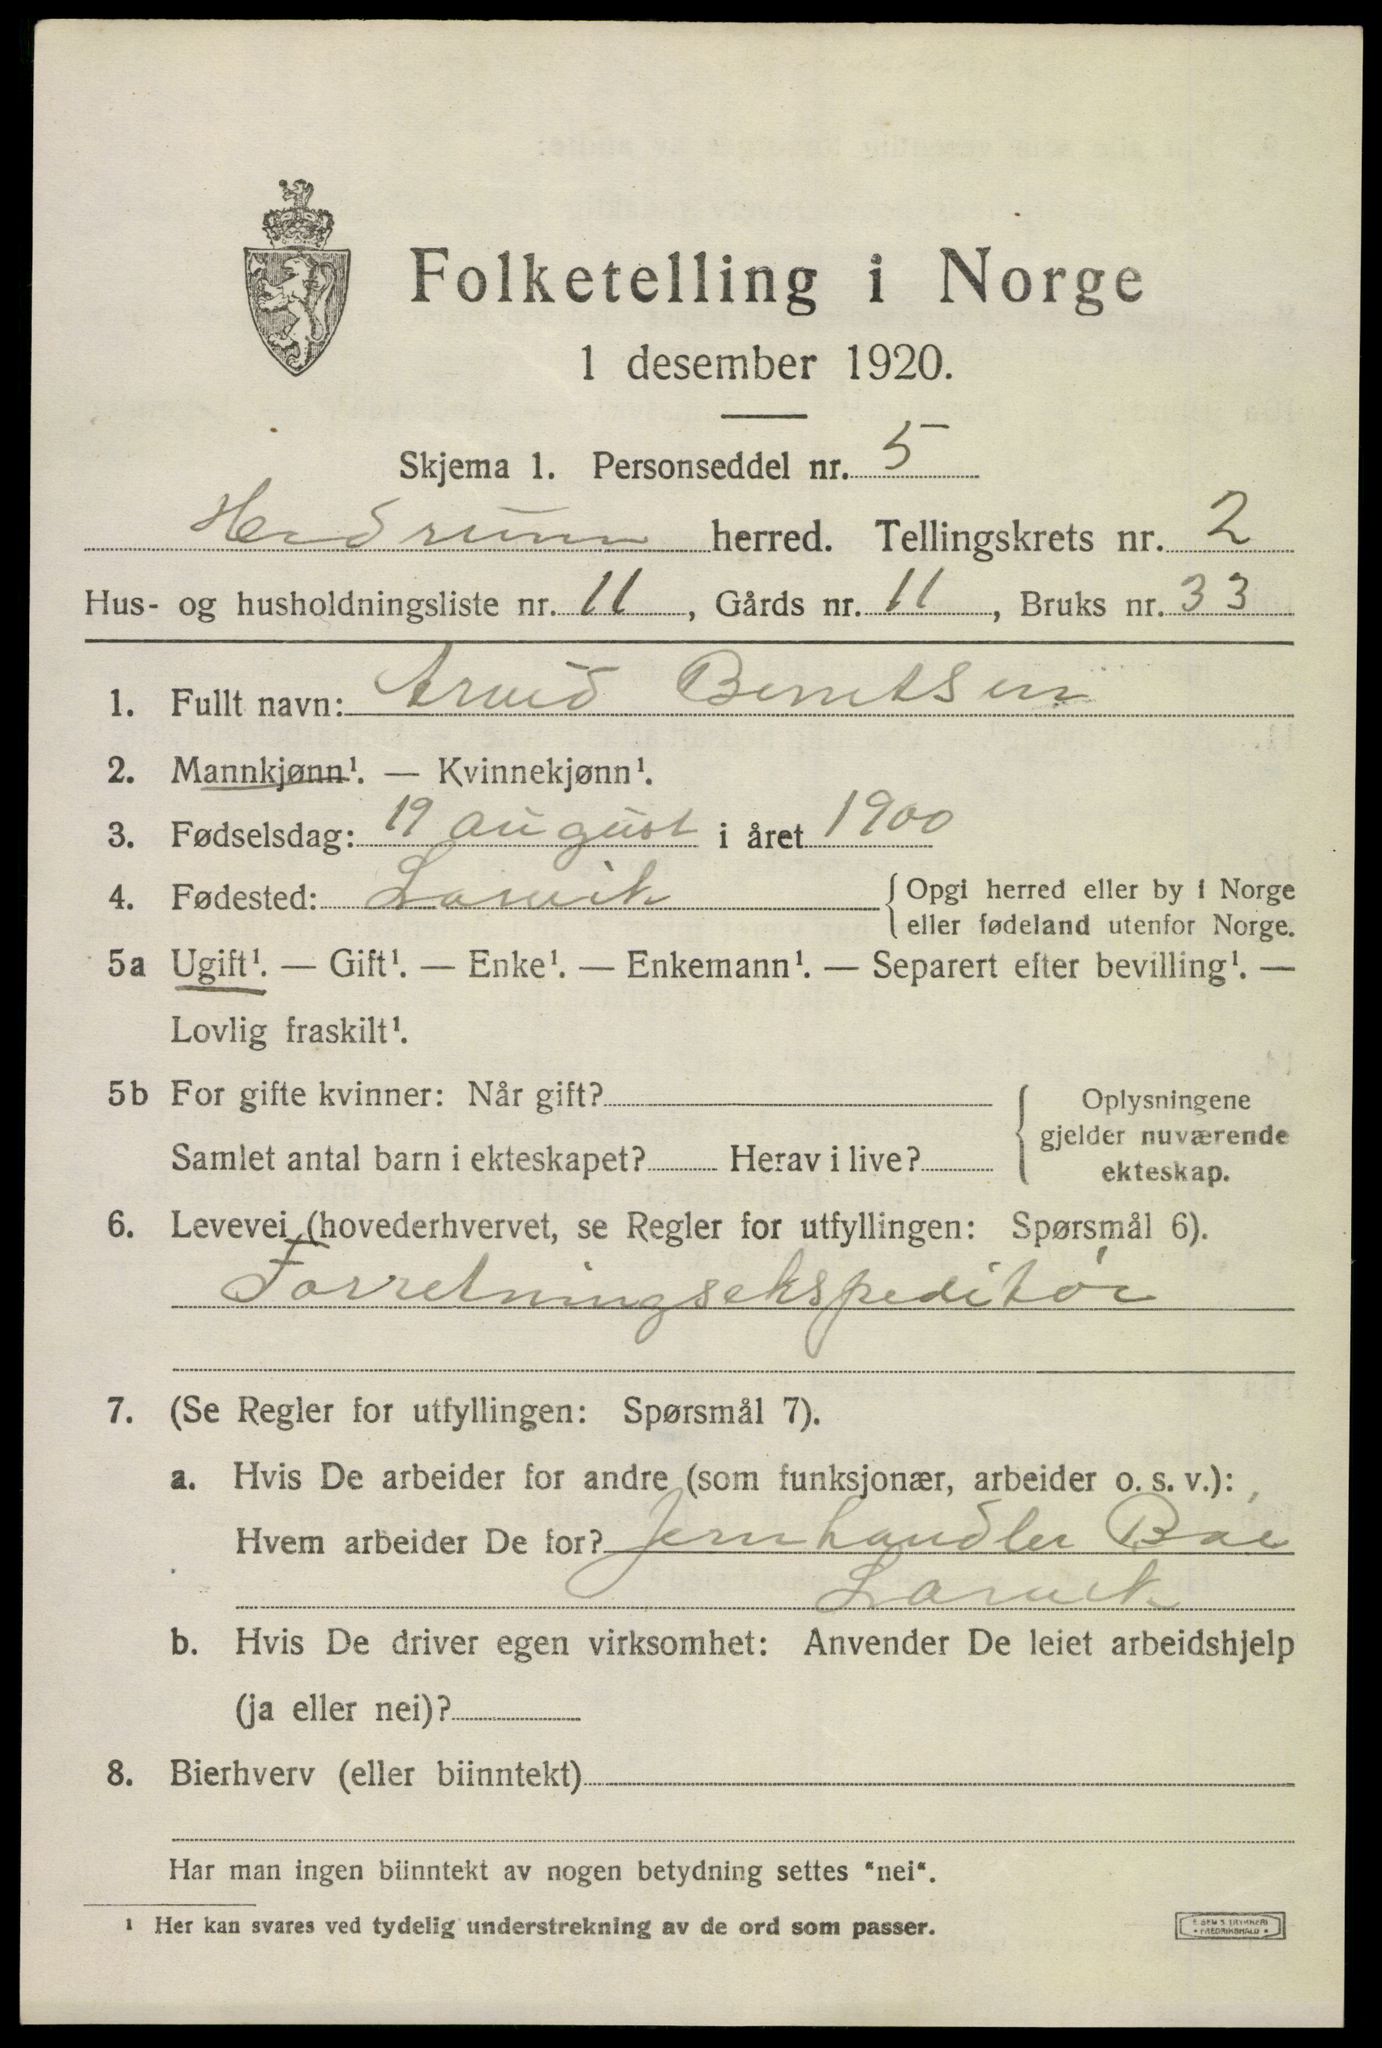 Folketelling i Norge
1 desember 1920.
Skjema 1. Personseddel nr. 5
Hedrum herred. Tellingskrets nr. 2
Hus- og husholdningsliste nr. 11, Gårds nr. 11, Bruks nr. 33
1. Fullt navn: Arvid Berntsen
2. Mannkjønn¹. — Kvinnekjønn¹.
3. Fødselsdag: 19 august i året 1900
4. Fødested: Larvik {Opgi herred eller by i Norge
eller fødeland utenfor Norge.
5a Ugift¹. — Gift¹. — Enke¹. — Enkemann¹. — Separert efter bevilling¹. —
Lovlig fraskilt¹.
5b For gifte kvinner: Når gift? Oplysningene
gjelder nuværende
Samlet antal barn i ekteskapet? Herav i live? ekteskap.
6. Levevei (hovederhvervet, se Regler for utfyllingen: Spørsmål 6).
Forretningsekspeditør
7. (Se Regler for utfyllingen: Spørsmål 7).
a. Hvis De arbeider for andre (som funksjonær, arbeider o. s. v.):
Hvem arbeider De for? Jernhandler Boe
Larvik
b. Hvis De driver egen virksomhet: Anvender De leiet arbeidshjelp
(ja eller nei)?
8. Bierhverv (eller biinntekt)
Har man ingen biinntekt av nogen betydning settes "nei".
¹ Her kan svares ved tydelig understrekning av de ord som passer.
E. SEM'S TRYKKERI
• FREDRIKSHALD •